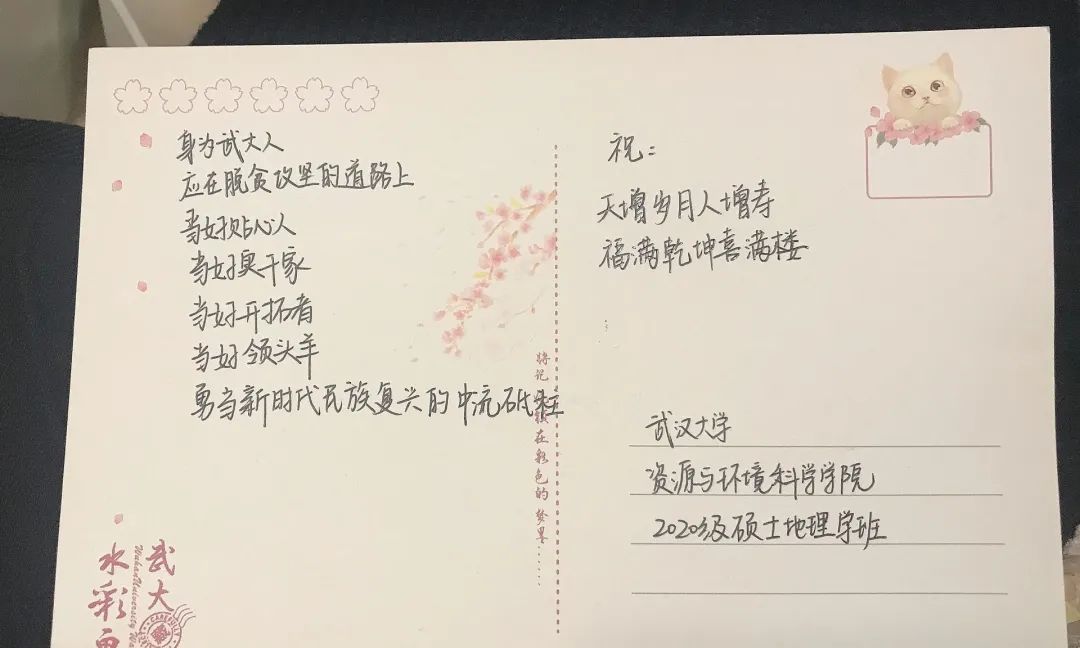 身为武大人
应在脱贫攻坚的道路上
当好贴心人
当好实干家
当好开拓者
当好领头羊
勇当新时代民族复兴的中流砥柱
祝：
天增岁月人增寿
福满乾坤喜满楼
武汉大学
资源与环境科学学院
2020级硕士地理学班
将记
在彩色的梦里......
武大
水彩
Wuhan University
CAREFULLY